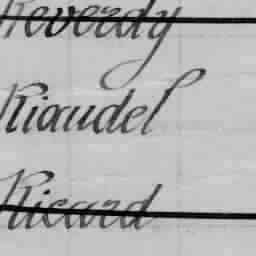 Reverdy
Riaudel
Ricard